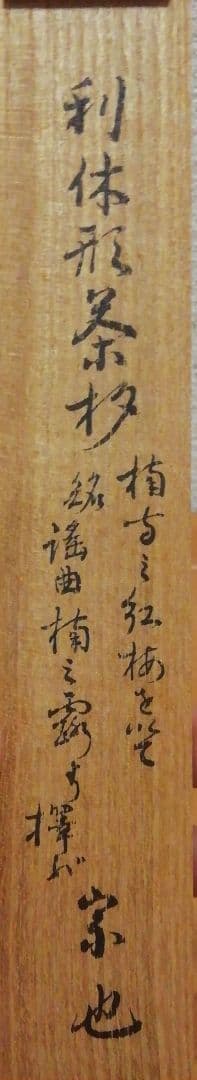 利休形茶杓
楠寺之紅梅を以て
銘
謡曲楠之露より
擇び
宗也